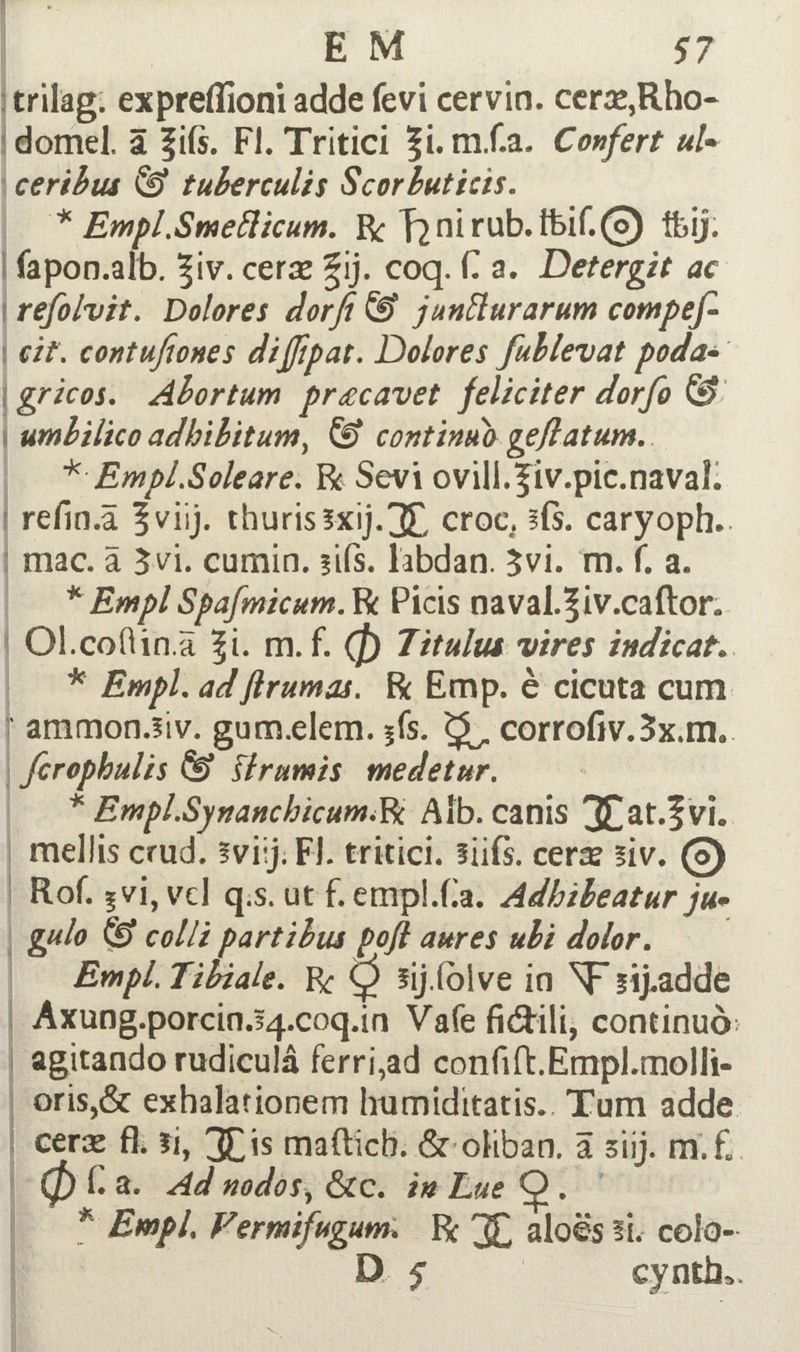 E M 57
trilag. expreſſioni adde ſevi cervin. ceræ,Rho-
domel. ã ℥iſs. Fl. Tritici ℥i. m.ſ.a. Confert ul-
ceribus & tuberculis Scorbuticis.
* Empl.Smecticum. ℞ ♄ni rub. ℔iſ.🜚 ℔ij.
ſapon.alb. ℥iv. ceræ ℥ij. coq. ſ. a. Detergit ac
reſolvit. Dolores dorſi & juncturarum compeſ-
cit. contuſiones diſſipat. Dolores ſublevat poda-
gricos. Abortum præcavet feliciter dorſo &
umbilico adhibitum, & continuò geſtatum.
* Empl.Soleare. ℞ Sevi ovill.℥iv.pic.naval.
reſin.ã ℥viij. thuris ℥xij.🝆 croc. ℥ſs. caryoph.
mac. ã ʒvi. cumin. ℥iſs. labdan. ʒvi. m. ſ. a.
* Empl Spaſmicum. ℞ Picis naval.℥iv.caſtor.
Ol.coſtin.ã ℥i. m. f. ⌽ Titulus vires indicat.
* Empl. ad ſtrumas. ℞ Emp. è cicuta cum
ammon.℥iv. gum.elem. ℥ſs. ☿ corroſiv.ʒx.m.
ſcrophulis & ſtrumis medetur.
* Empl.Synanchicum.℞ Alb. canis 🝆at.℥vi.
mellis crud. ℥viij. Fl. tritici. ℥iiſs. ceræ ℥iv. 🜚
Roſ. ℥vi, vel q.s. ut f. empl.ſ.a. Adhibeatur ju-
gulo & colli partibus poſt aures ubi dolor.
Empl. Tibiale. ℞ ☿ ℥ij.ſolve in 🜅 ℥ij.adde
Axung.porcin.℥4.coq.in Vaſe fictili, continuò
agitando rudiculâ ferri,ad conſiſt.Empl.molli-
oris,& exhalationem humiditatis. Tum adde
ceræ fl. ℥i, 🝆is maſtich. & oliban. ã ʒiij. m. f.
⌽ ſ. a. Ad nodos, &c. in Lue ♀.
* Empl. Vermifugum. ℞ 🝆 aloës ℥i. colo-
D 5 cynth.